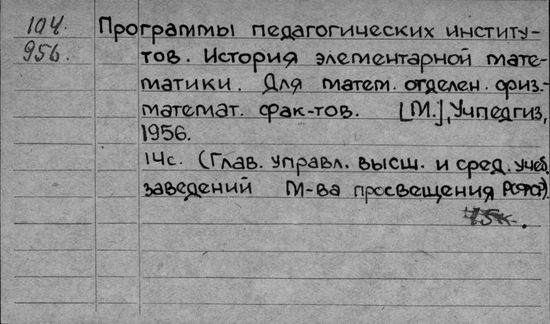 104.
956.
Программы педагогических институ-
тов. История элементарной мате-
матики. Для матем. отделен. физ.-
математ. фак-тов. [М.], Учпедгиз,
1956.
14с. (Глав. управл. высш. и сред. учеб.
заведений М-ва просвещения РСФСР).
45к.